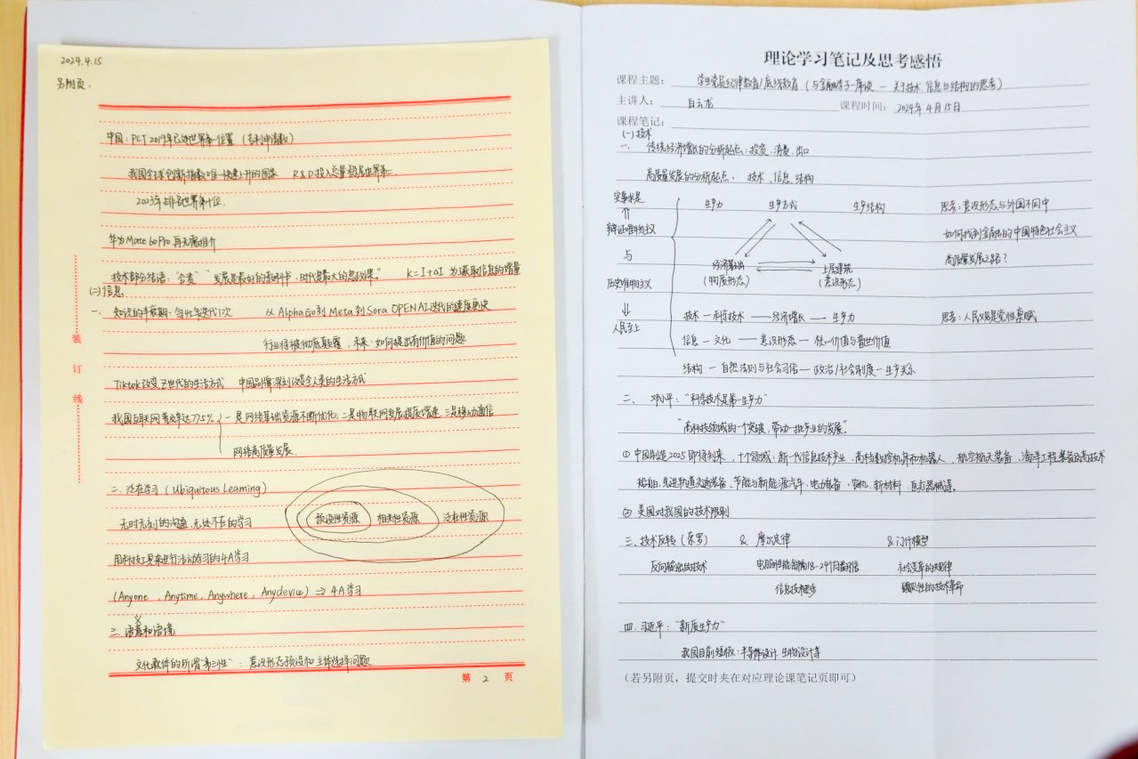 2024.4.15
另附页：
中国：PCT 2019年已达世界第一位置（专利申请数）
我国全球创新指数唯一快速上升的国家 R&D投入总量稳居世界第二
2023年上排名世界第十位.
华为Mate 60Pro 再无需推介
技术部分结语："合麦" "发展是最好的答辩书，时代是最大的思政课。" K=I+ΔI 为了获取信息的增量
(二)信息
一、知识的半衰期：每 年迭代1次 从AlphaGo到Meta到Sora OPENAI迭代的速度更快
行业将被彻底颠覆，未来：如何提出有价值的问题
Tiktok改变Z世代的生活方式 中国品牌深刻改变全人类的生活方式
我国互联网普及率达77.5% 一是网络基础资源不断优化；二是物联网发展提质增速 三是移动通信
网络高质量发展
二、泛在学习（Ubiquitous Learning）
无时无刻的沟通，无处不在的学习
预设性资源 相关性资源 泛在性资源
用科技工具来进行活动学习的4A学习
(Anyone , Anytime, Anywhere, Anydevice) ⇒ 4A学习
三、语义和语境
文化载体的所谓"第三性"：意识形态预设和主体选择问题
装
订
线
第 2 页
理论学习笔记及思考感悟
课程主题： 学生党员纪律教育/底线教育（与金融学子座谈 — 关于技术、信息与结构的思考）
主讲人： 白云龙 课程时间：2024年4月15日
课程笔记：
(一)技术
一、传统经济增长的分析起点：投资、消费、出口
高质量发展的分析起点：技术、信息、结构
实事求是 生产力 生产方式 生产结构 思考：意识形态与外国不同中
⇑
辩证唯物主义 如何找到金融的中国特色社会主义
与 经济基础 上层建筑 高质量发展之路？
历史唯物主义 （物质形态） （意识形态）
⇓
人民至上 技术—科学技术——经济增长—生产力 思考：人民观是党性察赋
信息—文化——意识形态—核心价值与普世价值
结构—自然法则与社会习俗—政治/社会制度—生产关系
二、邓小平："科学技术是第一生产力"
"高科技领域的一个突破，带动一批产业的发展"。
① 中国制造2025即将到来，十个领域：新一代信息技术产业、高档数控机床和机器人、航空航天装备、海洋工程装备及高技术
船舶、先进轨道交通装备、节能与新能源汽车、电力装备、农机、新材料、医疗器械等。
② 美国对我国的技术限制
三、技术反转（ 罗） & 摩尔定律 & 门什模型
反向输出的技术 电脑的性能每隔18-24个月会翻倍 社会变革的规律
信息技术进步 颠覆性的技术革命
四、习近平："新质生产力"
我国目前短板：半导体设计 生物设计等
（若另附页，提交时夹在对应理论课笔记页即可）